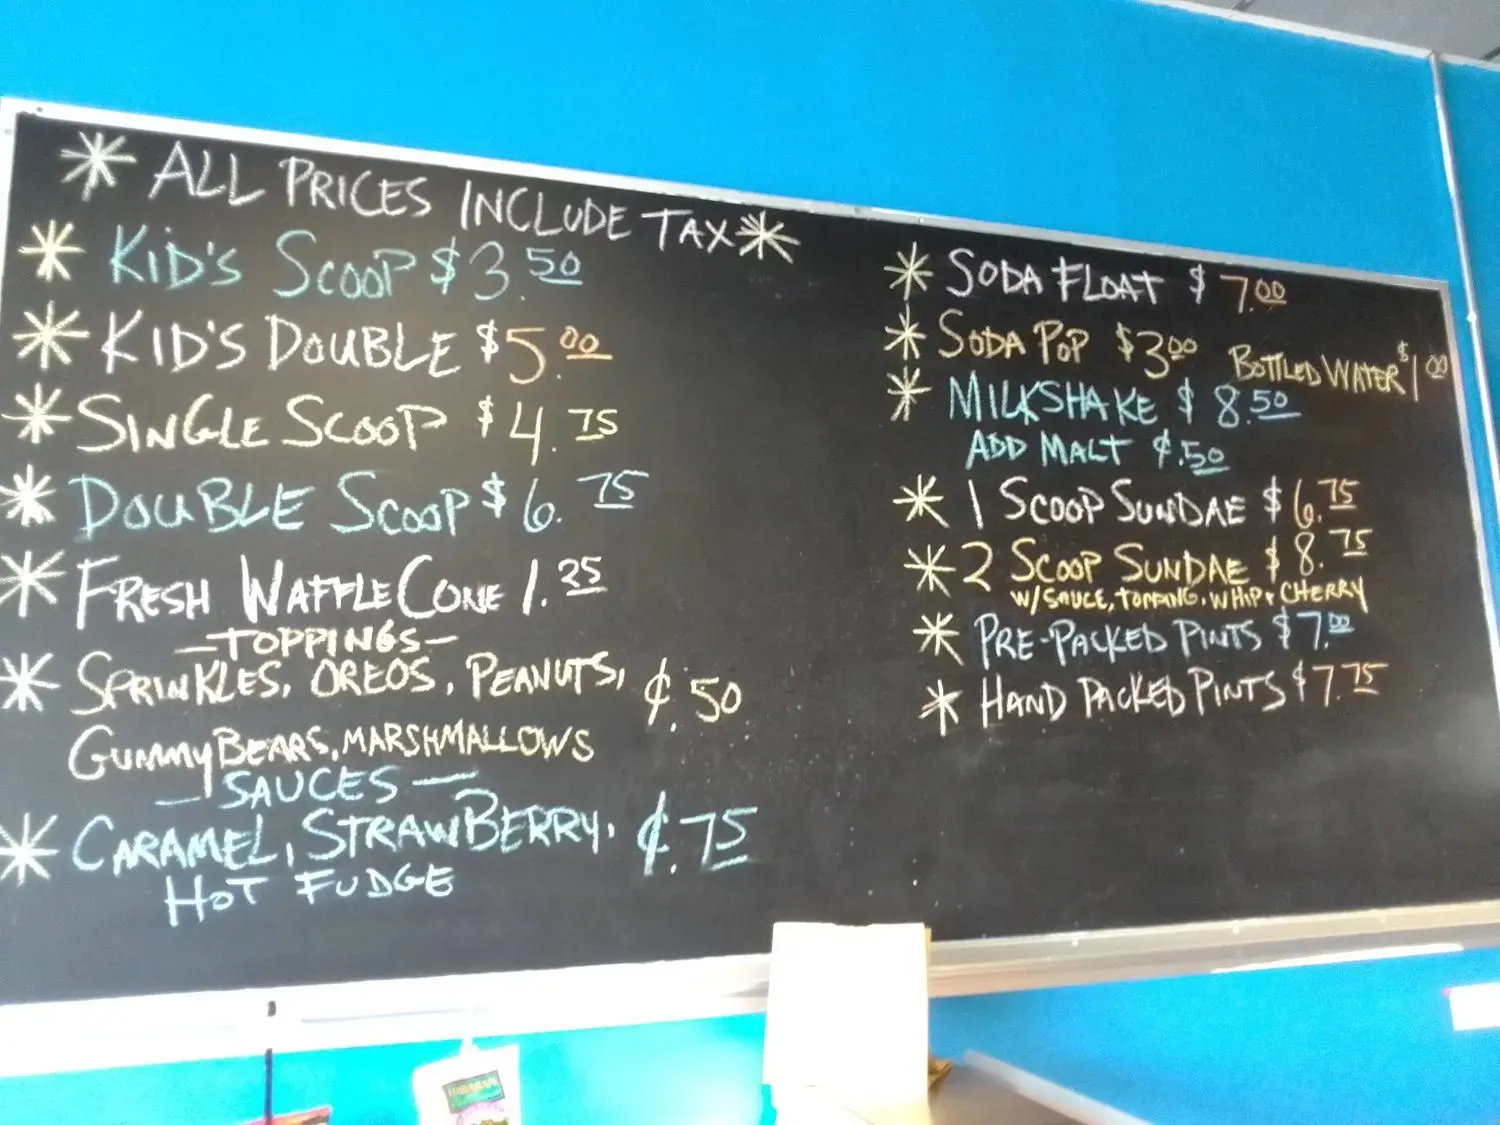 * ALL PRICES INCLUDE TAX *
* KID'S SCOOP $3.50
* KID'S DOUBLE $5.00
* SINGLE SCOOP $4.75
* DOUBLE SCOOP $6.75
* FRESH WAFFLE CONE 1.25
— TOPPINGS —
* SPRINKLES, OREOS, PEANUTS, ¢.50
GUMMY BEARS, MARSHMALLOWS
— SAUCES —
* CARAMEL, STRAWBERRY, ¢.75
HOT FUDGE
* SODA FLOAT $7.00
* SODA POP $3.00 BOTTLED WATER $1.00
* MILKSHAKE $8.50
ADD MALT ¢.50
* 1 SCOOP SUNDAE $6.75
* 2 SCOOP SUNDAE $8.75
W/ SAUCE, TOPPING, WHIP + CHERRY
* PRE-PACKED PINTS $7.00
* HAND PACKED PINTS $7.75